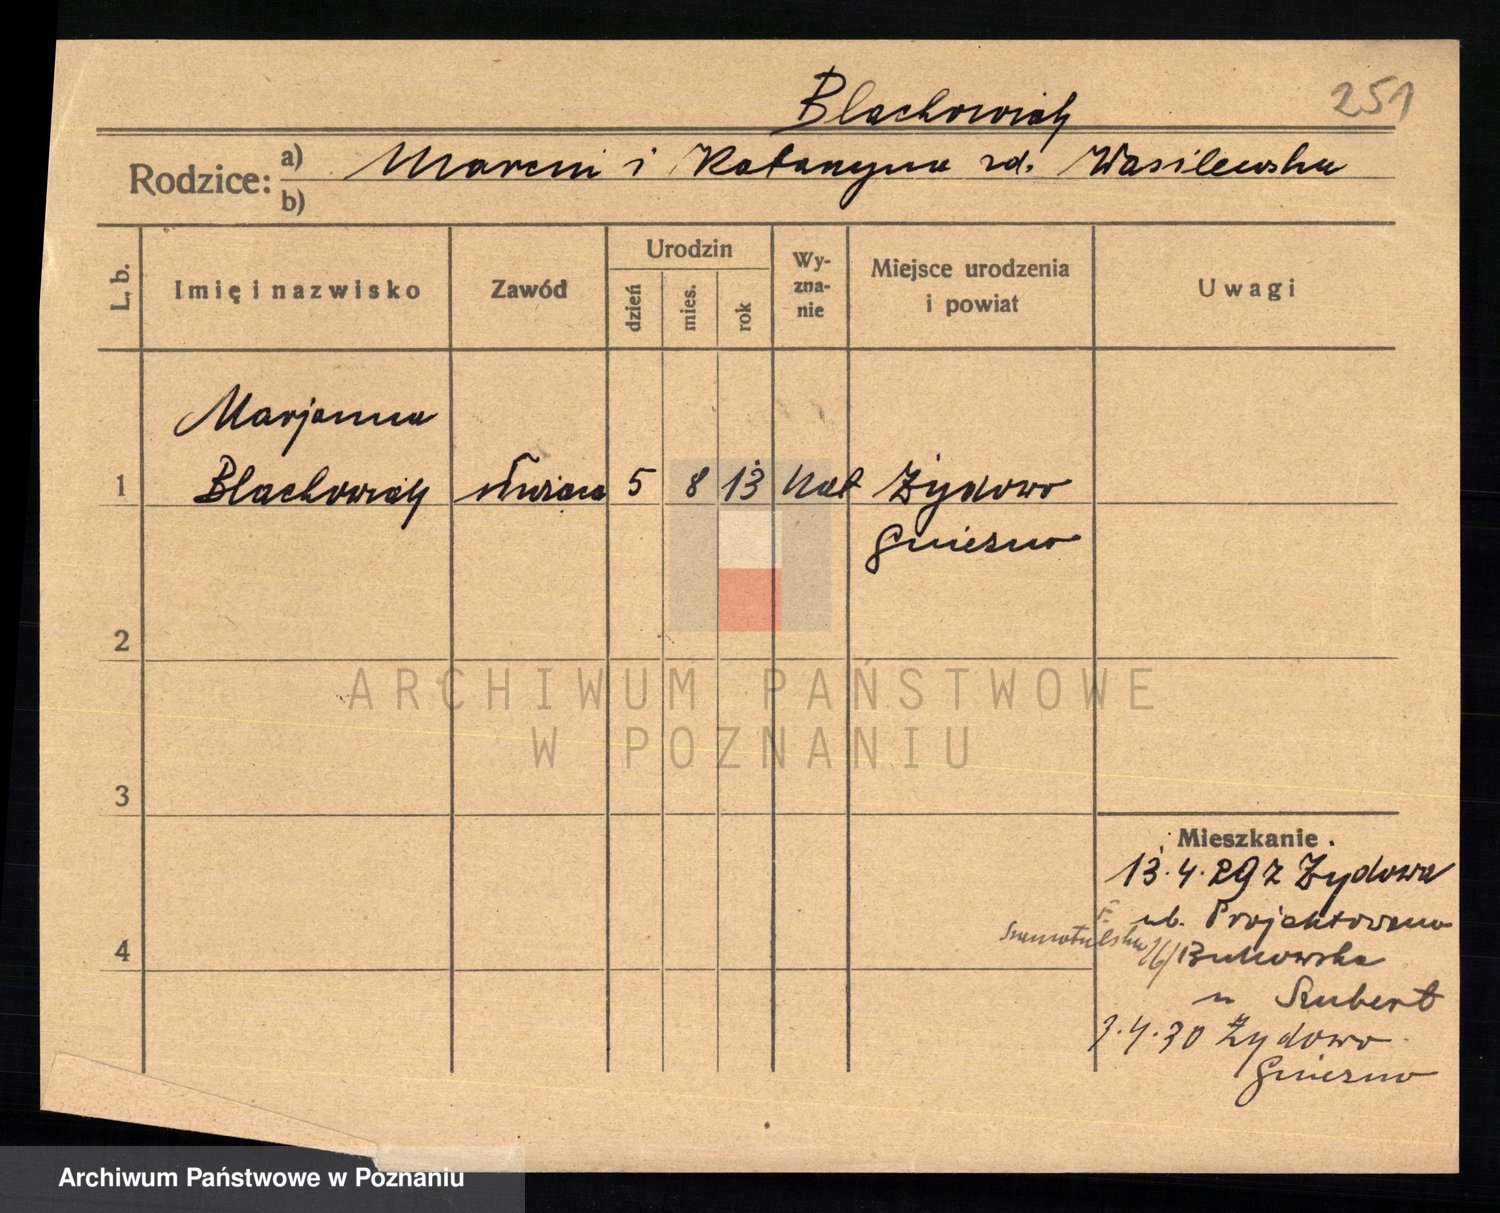 Blachowiak
251
Rodzice: a) Marcin i Katarzyna zd. Wasilewska
b)
L. b.
Imię i nazwisko
Zawód
Urodzin
dzień
mies.
rok
Wy-
zna-
nie
Miejsce urodzenia
i powiat
Uwagi
Marjanna
1 Blachowiak służąca 5 8 13 kat Żydowo
Gniezno
2
3
4
ARCHIWUM PAŃSTWOWE
W POZNANIU
Mieszkanie.
13.4.29 z Żydowa
ub. Projektowana
Szamotulska 16/Bukowska
u Szubert
3.4.30 Żydowo
Gniezno
Archiwum Państwowe w Poznaniu